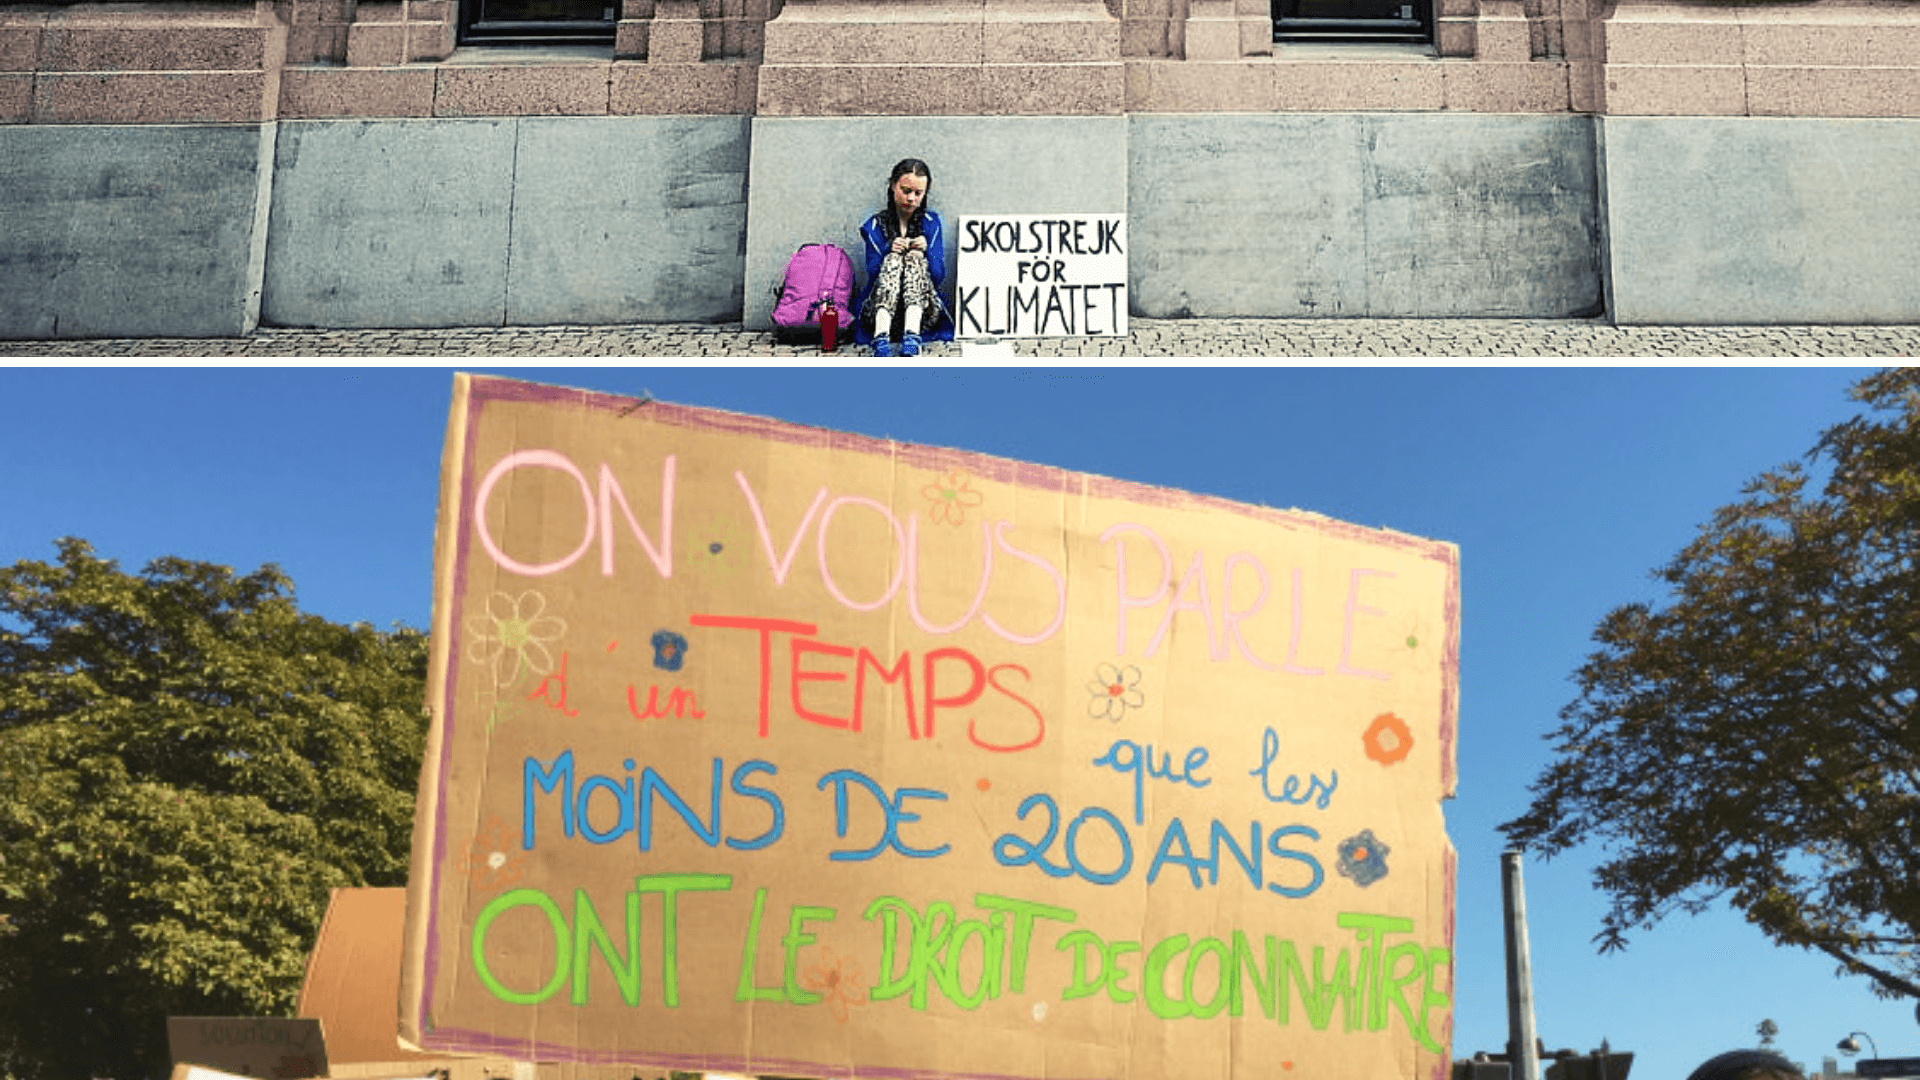 SKOLSTREJK
FÖR
KLIMATET
ON VOUS PARLE
d'un TEMPS
que les
MOiNS DE 20 ANS
ONT LE DROiT DE CONNAÎTRE